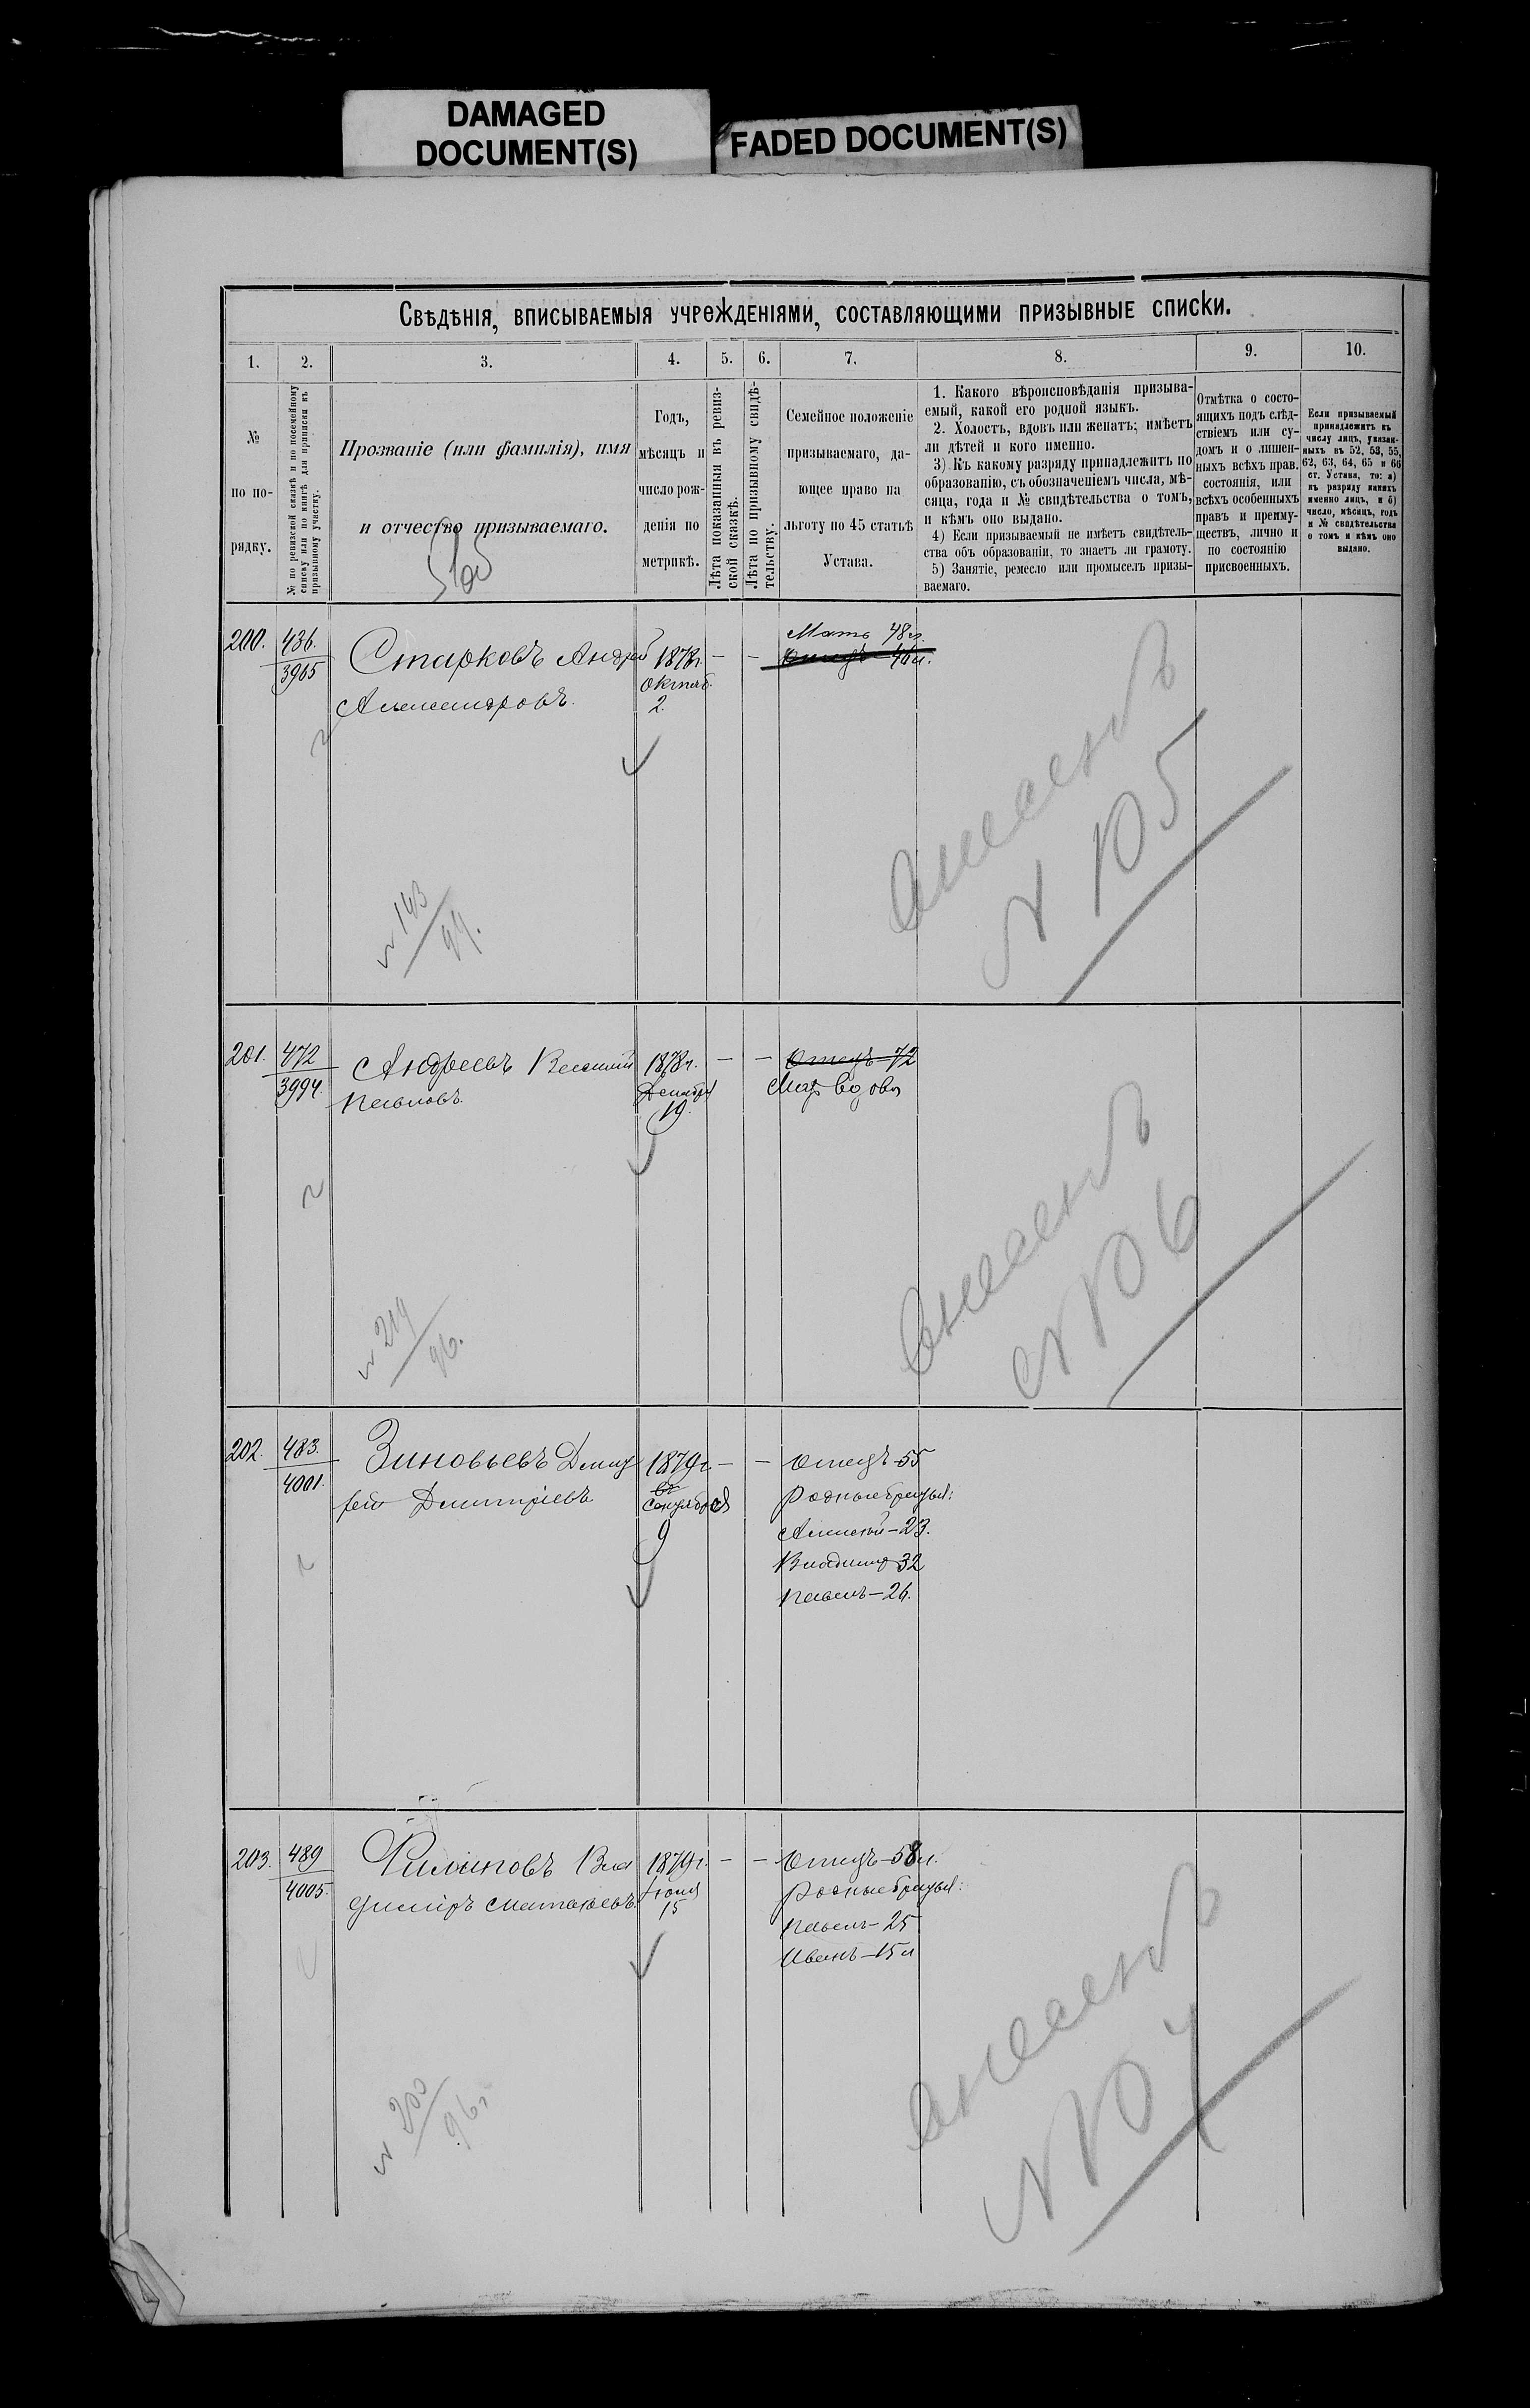 DAMAGED
DOCUMENT(S)
FADED DOCUMENT(S)
Свѣдѣнія, вписываемыя учрежденіями, составляющими призывные списки.
1. 2. 3. 4. 5. 6. 7. 8. 9. 10.
№
по по-
рядку.
№ по ревизской сказкѣ и по посемейному
списку или по книгѣ для приписки къ
призывному участку.
Прозваніе (или фамилія), имя
и отчество призываемаго.
Годъ,
мѣсяцъ и
число рож-
денія по
метрикѣ.
Лѣта показанныя въ ревиз-
ской сказкѣ.
Лѣта по призывному свидѣ-
тельству.
Семейное положеніе
призываемаго, да-
ющее право на
льготу по 45 статьѣ
Устава.
1. Какого вѣроисповѣданія призыва-
емый, какой его родной языкъ.
2. Холостъ, вдовъ или женатъ; имѣетъ
ли дѣтей и кого именно.
3) Къ какому разряду принадлежитъ по
образованію, съ обозначеніемъ числа, мѣ-
сяца, года и № свидѣтельства о томъ,
и кѣмъ оно выдано.
4) Если призываемый не имѣетъ свидѣтель-
ства объ образованіи, то знаетъ ли грамоту.
5) Занятіе, ремесло или промыселъ призы-
ваемаго.
Отмѣтка о состо-
ящихъ подъ слѣд-
ствіемъ или су-
домъ и о лишен-
ныхъ всѣхъ прав.
состоянія, или
всѣхъ особенныхъ
правъ и преиму-
ществъ, лично и
по состоянію
присвоенныхъ.
Если призываемый
принадлежитъ къ
числу лицъ, указан-
ныхъ въ 52, 53, 55,
62, 63, 64, 65 и 66
ст. Устава, то: а)
къ разряду какихъ
именно лицъ, и б)
число, мѣсяцъ, годъ
и № свидѣтельства
о томъ и кѣмъ оно
выдано.
200. 436.
3965
Старковъ Андрей
Александровъ.
1878г.
Октяб.
2.
— —
Мать 48л.
Отецъ 46л.
№ 105
№ 143
99.
201. 472
3994.
Андреевъ Василій
Павловъ.
1878г.
Декабря
19.
— —
Отецъ 72
Мать вдова
№ 106
№ 219
96.
202. 483.
4001.
Зиновьевъ Дмит
рій Дмитріевъ
1879г.
9
— —
Отецъ-55
родные братья:
Алексѣй-23.
Владимір 32
Павелъ-26.
203. 489
4005.
Филиповъ Вла
диміръ Матвѣевъ.
1879г.
Іюля
15
— —
Отецъ-58л.
родные братья:
Павелъ-25
Иванъ-15л
№ 107
№ 200
96г